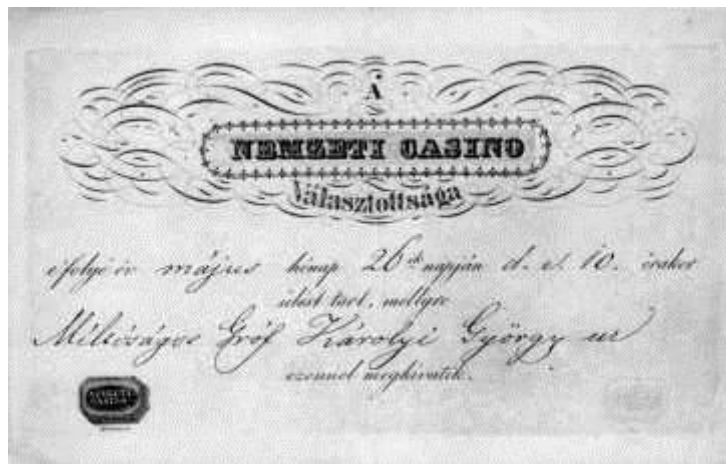 A
NEMZETI CASINO
Választottsága
e' folyó év május hónap 26ik napján d. e. 10. órakor
ülést tart, mellyre
Méltóságos Gróf Károlyi György ur
ezennel meghivatik.
NEMZETI
CASINO